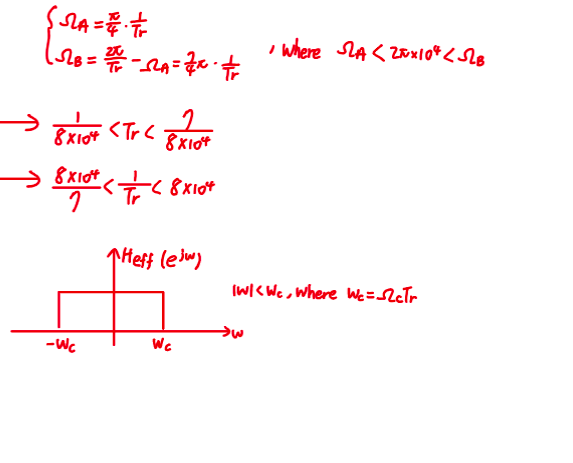 { Ω_A = π/4 · 1/Tr
Ω_B = 2π/Tr - Ω_A = 7/4 π · 1/Tr , where Ω_A < 2π×10⁴ < Ω_B
→ 1/(8×10⁴) < Tr < 7/(8×10⁴)
→ (8×10⁴)/7 < 1/Tr < 8×10⁴
Heff (e^jw)
|w| < Wc, where Wc = Ωc Tr
-Wc Wc w